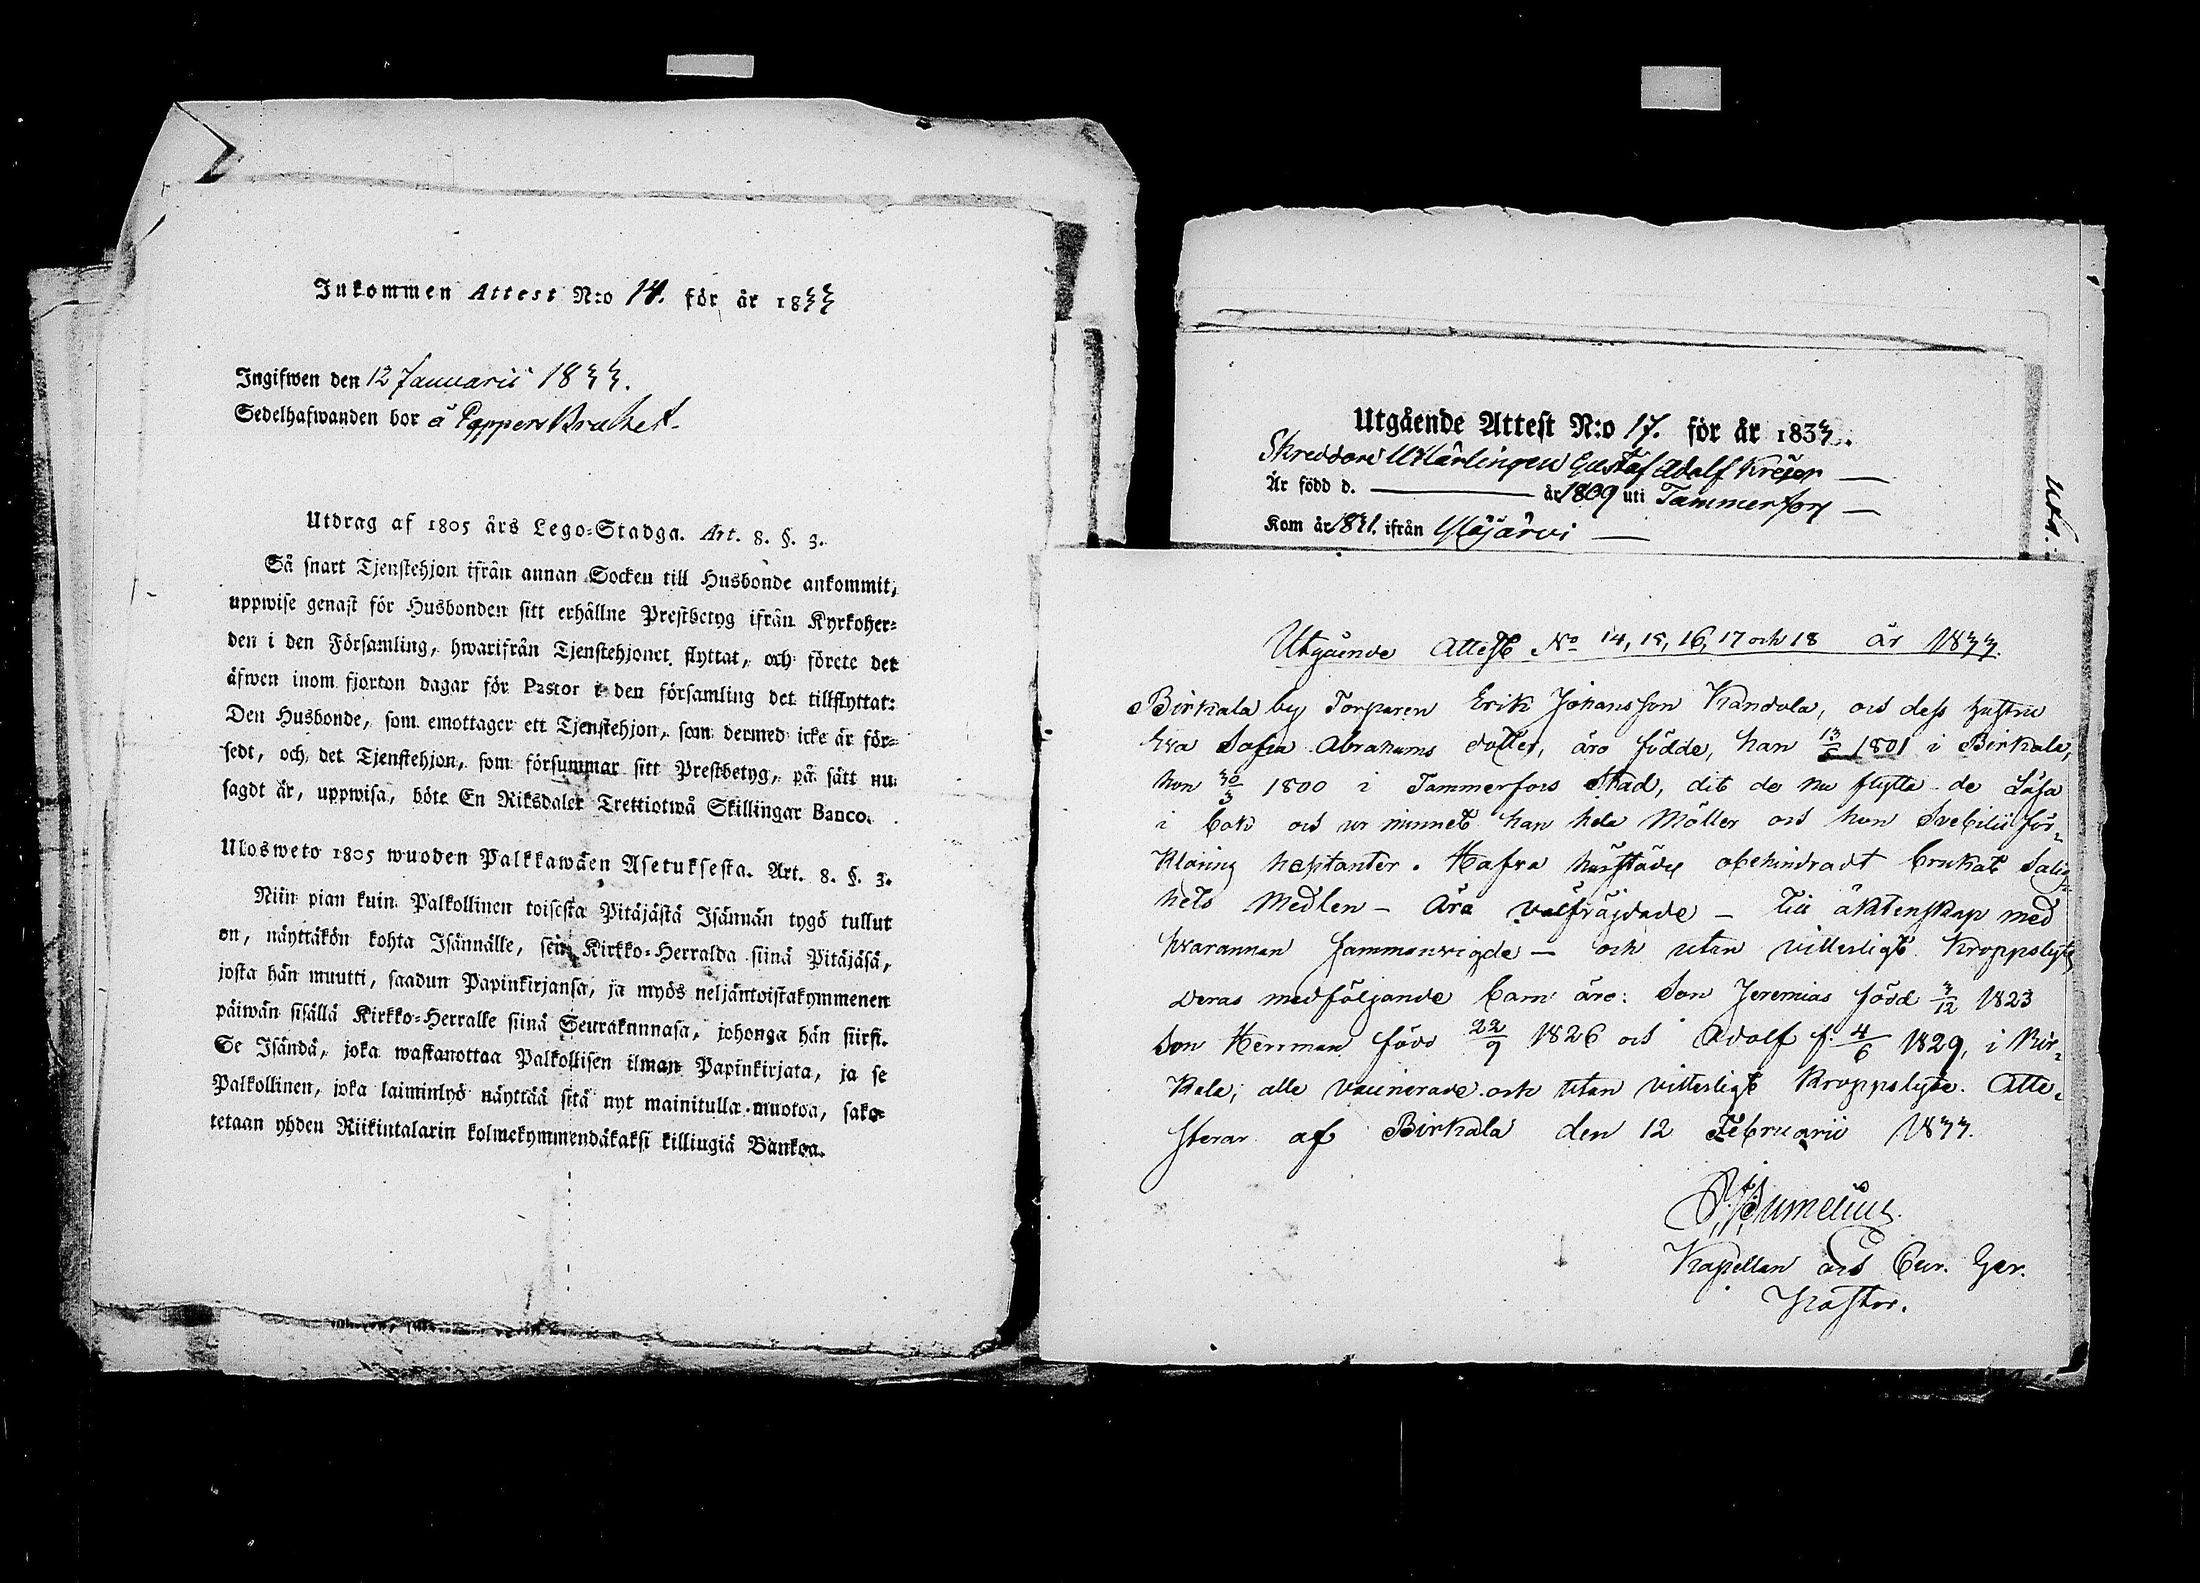 Inkommen Attest N:o 14. för år 1833
Ingifwen den 12 Januarii 1833.
Sedelhafwanden bor å Pappers Bruket.
Utdrag af 1805 års Lego-Stadga. Art. 8. §. 3.
Så snart Tjenstehjon ifrån annan Socken till Husbonde ankommit,
uppwise genast för Husbonden sitt erhållne Prestbetyg ifrån Kyrkoher-
den i den Församling, hwarifrån Tjenstehjonet flyttat, och förete det
äfwen inom fjorton dagar för Pastor i den församling det tillflyttat:
Den Husbonde, som emottager ett Tjenstehjon, som dermed icke är för-
sedt, och det Tjenstehjon, som försummar sitt Prestbetyg, på sätt nu
sagdt är, uppwisa, böte En Riksdaler Trettiotwå Skillingar Banco.
Ulosweto 1805 wuoden Palkkawäen Asetuksesta. Art. 8. §. 3.
Niin pian kuin Palkollinen toisesta Pitäjästä Isännän tygö tullut
on, näyttäkön kohta Isännälle, sen Kirkko-Herralda siinä Pitäjäsä,
josta hän muutti, saadun Papinkirjansa, ja myös neljäntoistakymmenen
päiwän sisällä Kirkko-Herralle siinä Seurakunnasa, johonga hän siirsi.
Se Isändä, joka wastanottaa Palkollisen ilman Papinkirjata, ja se
Palkollinen, joka laiminlyö näyttää sitä nyt mainitulla muotoa, sako-
tetaan yhden Riikintalarin kolmekymmendäkaksi killingiä Bankoa.
Utgående Attest N:o 17. för år 1833.
Skreddare Lärlingen Gustaf Adolf
Är född d. — år 1809 uti Tammerfors —
Kom år 1831. ifrån Ylöjärvi —
Utgående Attest No 14, 15, 16, 17 och 18 år 1833.
Birkala by Torparen Erik Johansson Kandola, och dess hustru
Eva Sofia Abrahams dotter, äro födde, han 13/ 1801 i Birkala,
hon 30/3 1800 i Tammerfors Stad, dit de nu flytta. de Läsa
i bok och ur minnet han hela Möller och hon Svebilii för-
klaring hasptanter. Hafva härstädes obehindradt brukat Salig-
hets Medlen - Äro välfräjdade - till äktenskap med
hvarannan sammanvigde - och utan vitterligt Kroppslyte,
deras medföljande barn äro: Son Jeremias född 3/12 1823
Son Herrman född 22/9 1826 och Adolf f. 4/6 1829, i Bir-
kala, alle vaccinerade och utan vitterligt Kroppslyte. Atte-
sterar af Birkala den 12 Februarii 1833.
Kapellan och Cur. Ger.
Pastor.